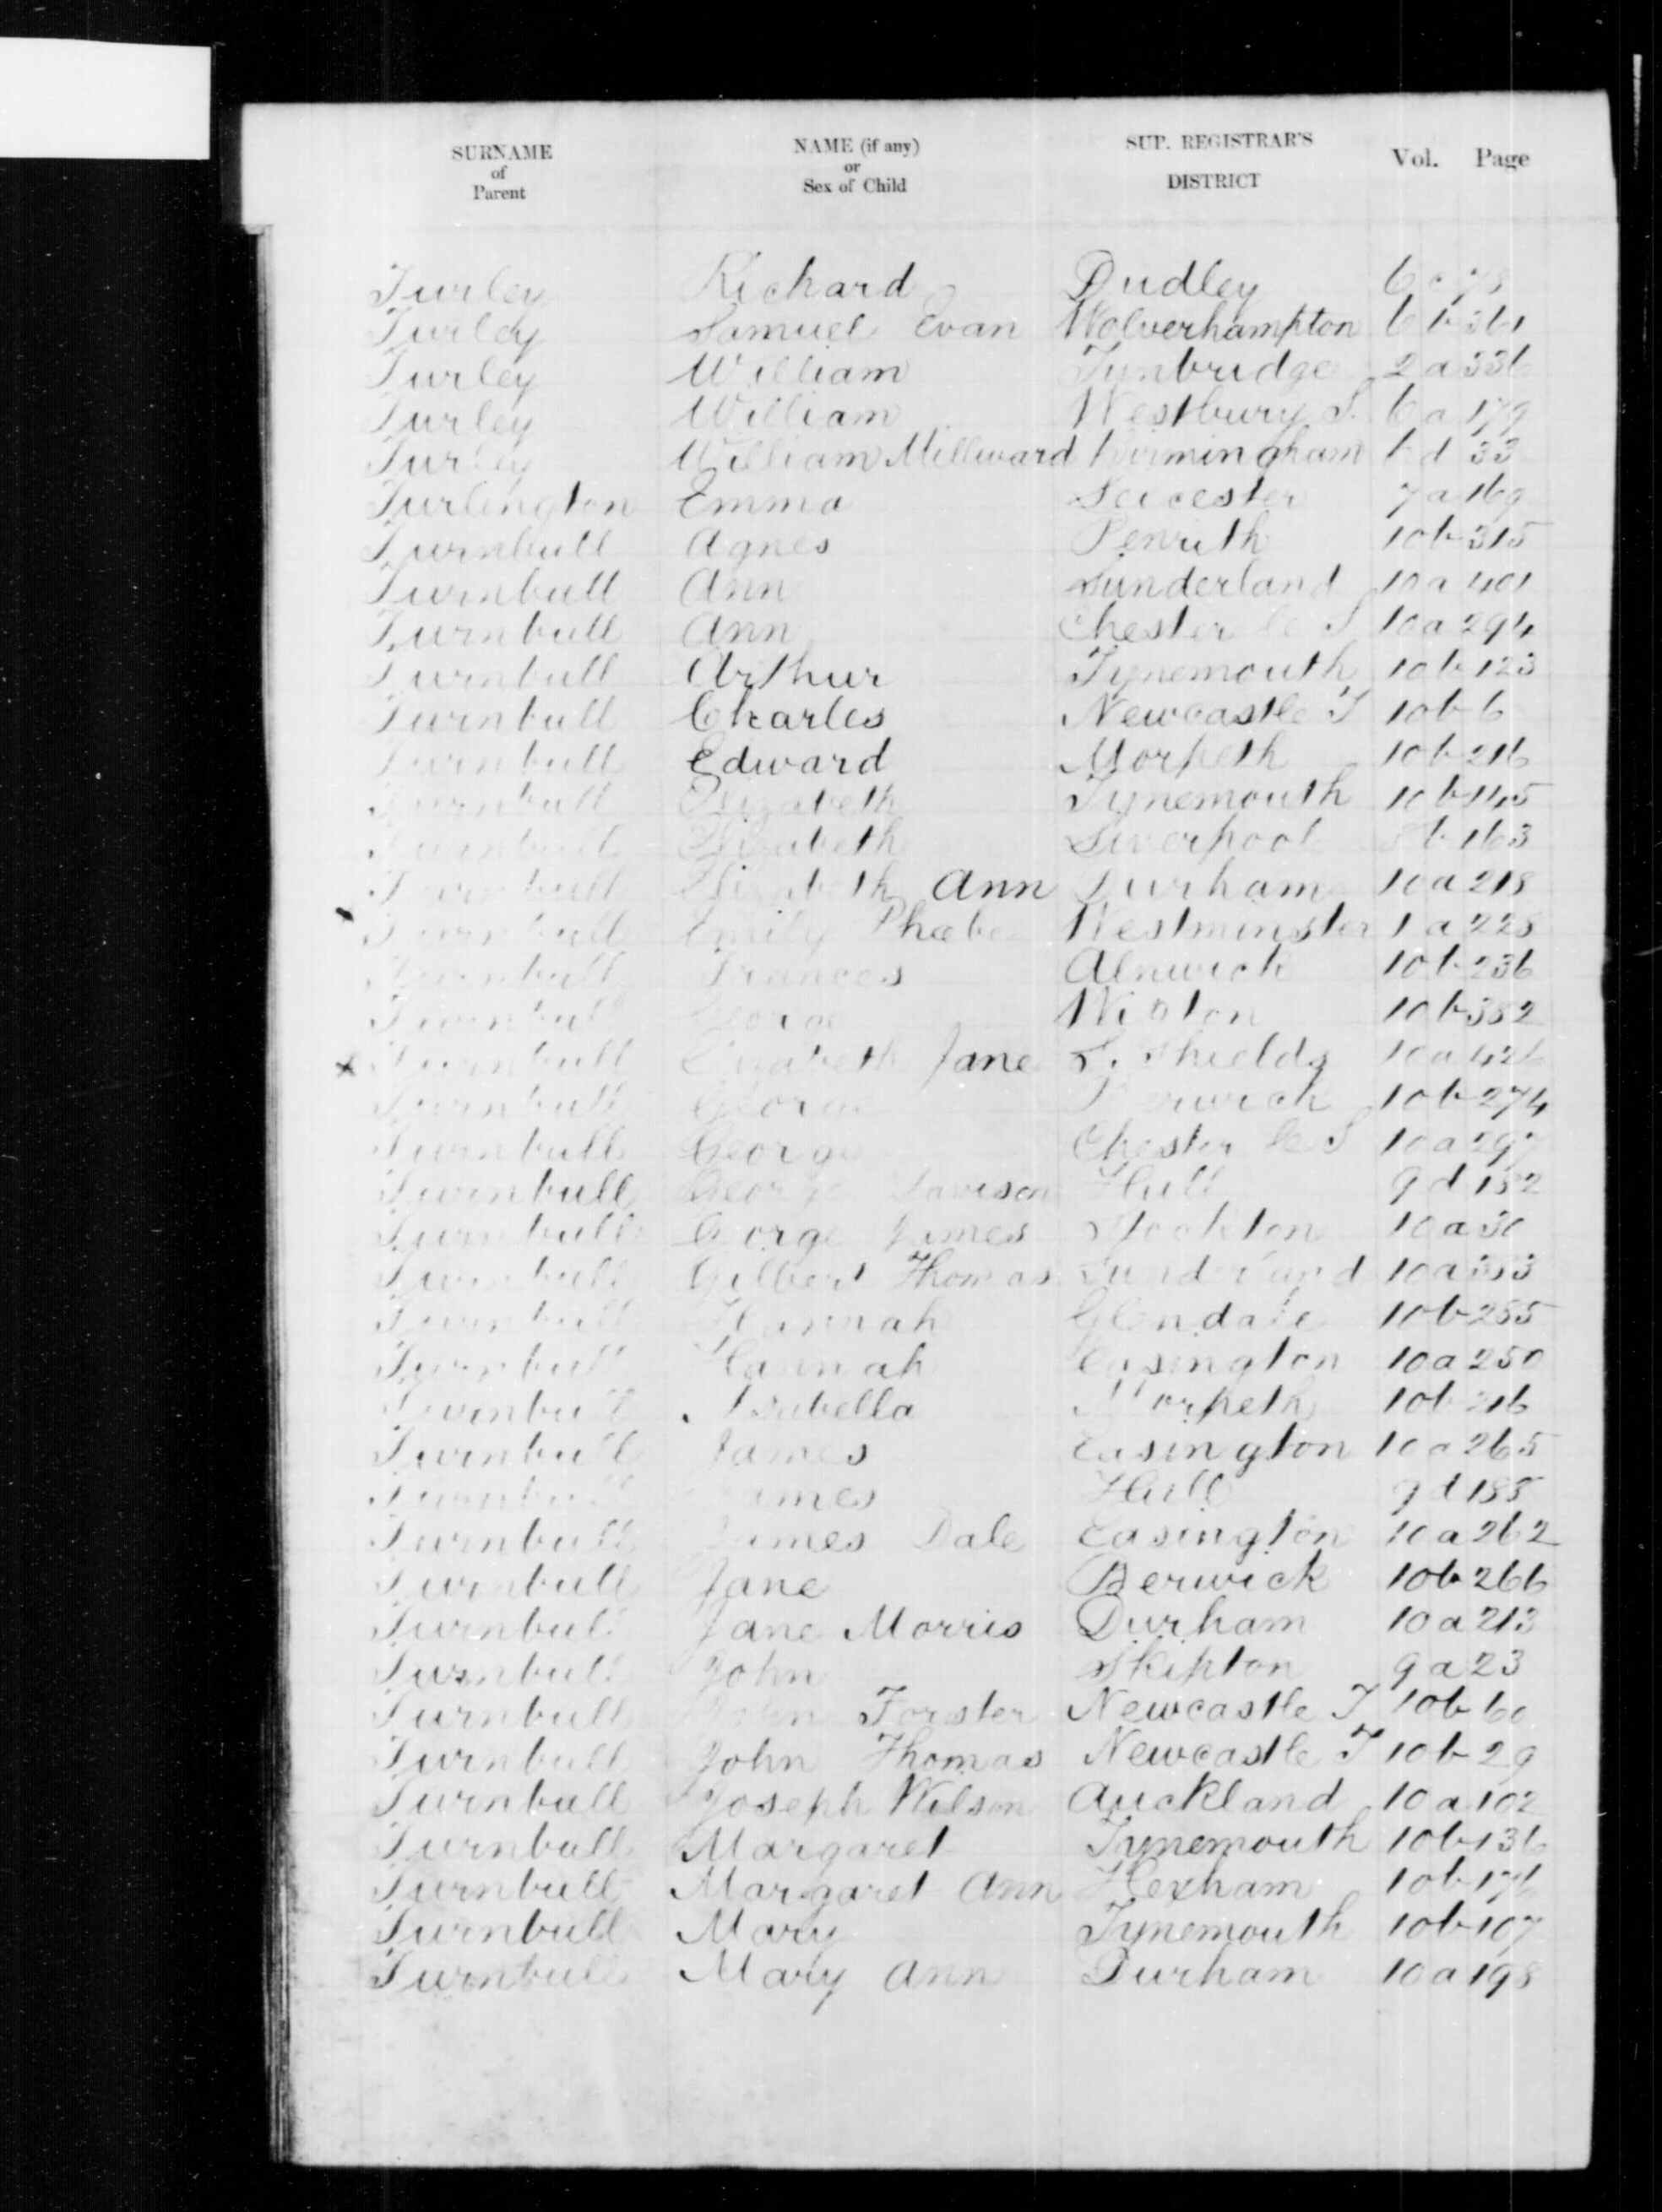 SURNAME of Parent NAME (if any) or Sex of Child SUP. REGISTRAR'S DISTRICT Vol. Page
Turley Richard Dudley 6 c 78
Turley Samuel Evan Wolverhampton 6 b 361
Turley William Tunbridge 2 a 336
Turley William Westbury S. 6 a 179
Turley William Millward Birmingham 6 d 33
Turlington Emma Leicester 7 a 169
Turnbull Agnes Penrith 10 b 315
Turnbull Ann Sunderland 10 a 401
Turnbull Ann Chester le S 10 a 294
Turnbull Arthur Tynemouth 10 b 123
Turnbull Charles Newcastle T 10 b 6
Turnbull Edward Morpeth 10 b 216
Turnbull Elizabeth Tynemouth 10 b 145
Turnbull Elizabeth Liverpool 8 b 163
Turnbull Elizabeth Ann Durham 10 a 218
Turnbull Emily Phœbe Westminster 1 a 228
Turnbull Frances Alnwick 10 b 236
Turnbull George Wigton 10 b 382
Turnbull Elizabeth Jane S. Shields 10 a 426
Turnbull George Berwick 10 b 274
Turnbull George Chester le S 10 a 297
Turnbull George Davison Hull 9 d 182
Turnbull George James Stockton 10 a 30
Turnbull Gilbert Thomas Sunderland 10 a
Turnbull Hannah Glendale 10 b 255
Turnbull Hannah Easington 10 a 250
Turnbull Isabella Morpeth 10 b 216
Turnbull James Easington 10 a 265
Turnbull James Hull 9 d 188
Turnbull James Dale Easington 10 a 262
Turnbull Jane Berwick 10b 266
Turnbull Jane Morris Durham 10 a 213
Turnbull John Skipton 9 a 23
Turnbull John Forster Newcastle T 10b 60
Turnbull John Thomas Newcastle T 10 b 29
Turnbull Joseph Wilson Auckland 10 a 102
Turnbull Margaret Tynemouth 10 b 136
Turnbull Margaret Ann Hexham 10 b 176
Turnbull Mary Tynemouth 10 b 107
Turnbull Mary Ann Durham 10 a 198